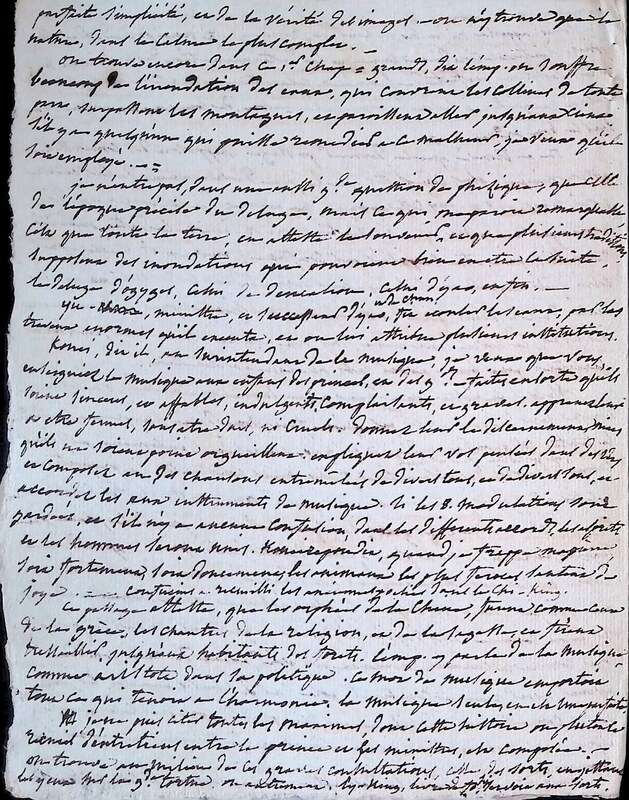 parfaite simplicité, et de la vérité des images. - on n'y trouve que la
nature, dans le calme le plus complet. -
on trouve encore dans ce 1er chap = grands, dit l'emp. on souffre
beaucoup de l'inondation des eaux, qui couvrent les collines de toute
part, surpassent les montagnes, et paroissent aller jusqu'aux cieux
s'il y a quelqu'un qui puisse remédier à ce malheur, je veux qu'il
soit employé. - =
je n'entre pas, dans une aussi gde question de physique, que celle
de l'époque précise du déluge, mais ce qui me paroit remarquable
c'est que toute la terre, en atteste le souvenir, et que plusieurs traditions
supposent des inondations qui pourroient bien en etre la suite.
le déluge d'ogygès, celui de deucalion, celui d'yao, enfin. -
yu - ministre, et successeur d'yao, et de chun, fit écouler les eaux, par les
travaux enormes qu'il executa, et on lui attribue plusieurs institutions.
Kouei, dit il, au surintendant de la musique, je veux que vous
enseigniez la musique aux enfans des princes, et des gds - faites en sorte qu'ils
soient sinceres, et affables, indulgents, complaisants, et graves. apprenez leur
à etre fermes, sans etre durs, ni cruels. donnez leur le discernement, mais
qu'ils ne soient point orgueilleux. expliquez leur vos pensées dans des vers
et composez en des chansons entremelées de divers tons, et de divers sons, et
accordez les aux instruments de musique. si les 8 modulations sont
gardées, et s'il n'y a aucune confusion, dans les differents accords, les esprits
et les hommes seront unis. Kouei repondit, quand je frappe ma pierre
soit fortement, soit doucement, les animaux les plus feroces, sautent de
joye. - confucius a recueilli les anciennes poésies dans le Chi-king.
Ce passage atteste, que les orphées de la Chine, furent comme ceux
de la grèce, les chantres de la religion, et de la sagesse, et firent
tressaillir, jusqu'aux habitants des forets. l'emp. y parle de la musique
comme aristote dans sa politique. ce mot de musique emportoit
tout ce qui tenoit à l'harmonie. la musique seule en est une partie
je ne puis citer toutes les maximes, dont cette histoire ou plutot le
recueil d'entretiens entre le prince et les ministres, est composée. -
on trouve au milieu de ces graves consultations, celle des sorts, en jettant
les yeux sur la gde tortue ou autrement.